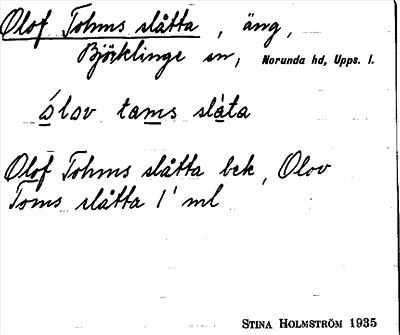 Olof Tohms slåtta, äng,
Björklinge sn, Norunda hd, Upps. l.
ólov tams slàta
Olof Tohms slåtta bek, Olov
Toms slåtta 1' ml
STINA HOLMSTRÖM 1935